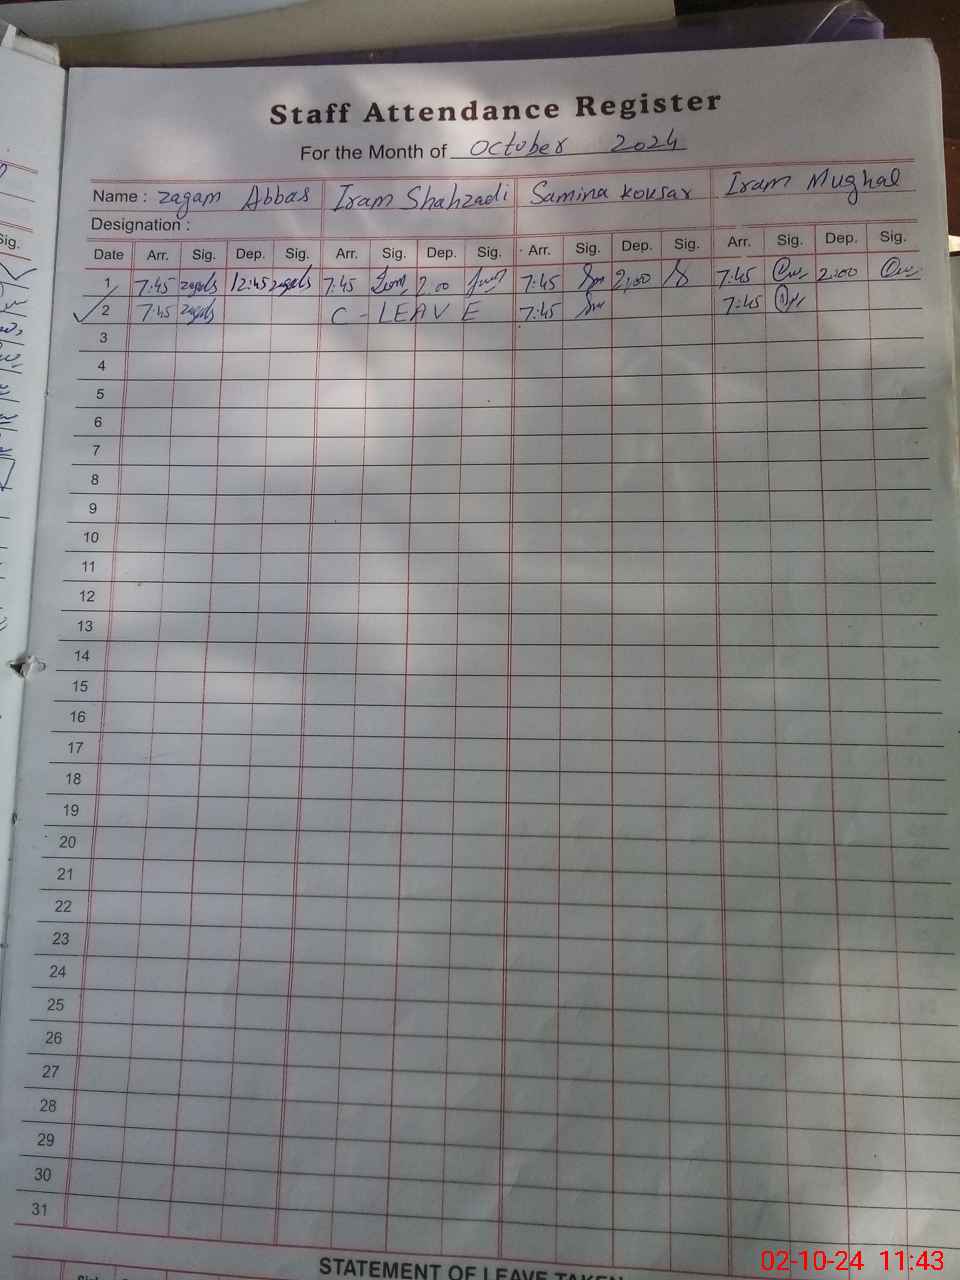 Staff Attendance Register
For the Month of October 2024
Name : Zagam Abbas Iram Shahzadi Samina Kousar Iram Mughal
Designation :
Date Arr. Sig. Dep. Sig. Arr. Sig. Dep. Sig. Arr. Sig. Dep. Sig. Arr. Sig. Dep. Sig.
1 7:45 12:45 7:45 2:00 7:45 2:00 7:45 2:00
2 7:45 C - LEAVE 7:45 7:45
3
4
5
6
7
8
9
10
11
12
13
14
15
16
17
18
19
20
21
22
23
24
25
26
27
28
29
30
31
STATEMENT OF LEAVE TAKEN
02-10-24 11:43